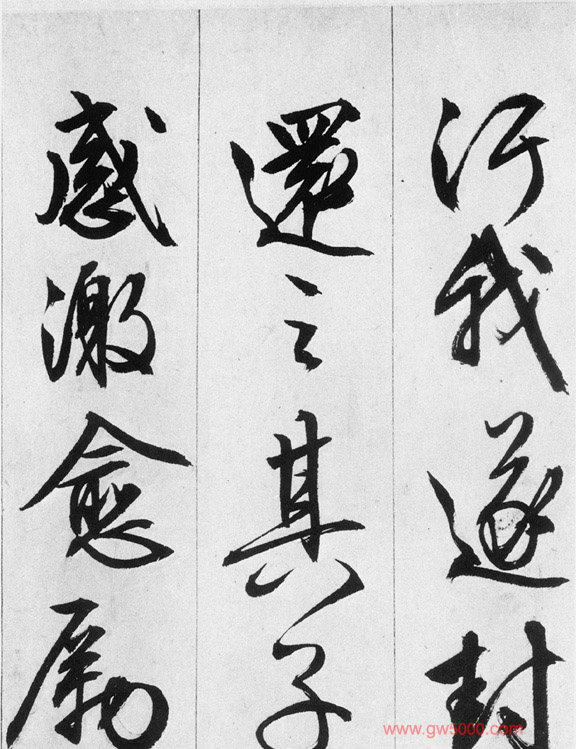 汙我遂封
還之其子
感激愈厲
www.gw5000.com